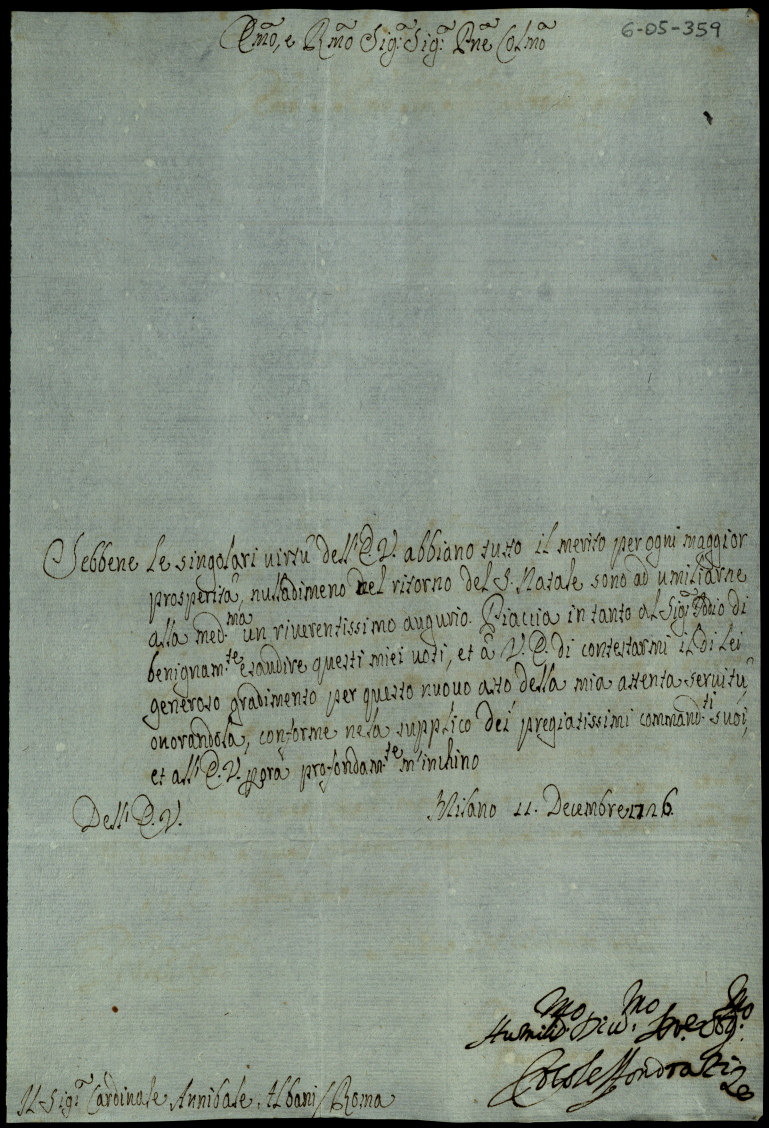 Em̃o, e Rm̃o Sig:r Sig:r Pñe Colm̃o
6-05-359
Sebbene le singolari virtù dell'E.V. abbiano tutto il merito per ogni maggior
prosperità, nulladimeno nel ritorno del S. Natale sono ad umiliarne
alla med.ma un riverentissimo augurio. Piaccia in tanto al Sig:r Iddio di
benignam.te esaudire questi miei voti, et à V.E. di contestarmi il di lei
generoso gradimento per questo nuovo atto della mia attenta servitù,
onorandola, conforme nela supplico dei pregiatissimi command.ti suoi,
et all'E.V. profondam.te m'inchino
Dell'E.V.
Milano 11. Decembre 1726.
Humiliss.mo Div.mo Ser.re Obg.mo
Sfondrati
Il Sig:r Cardinale Annibale Albani / Roma